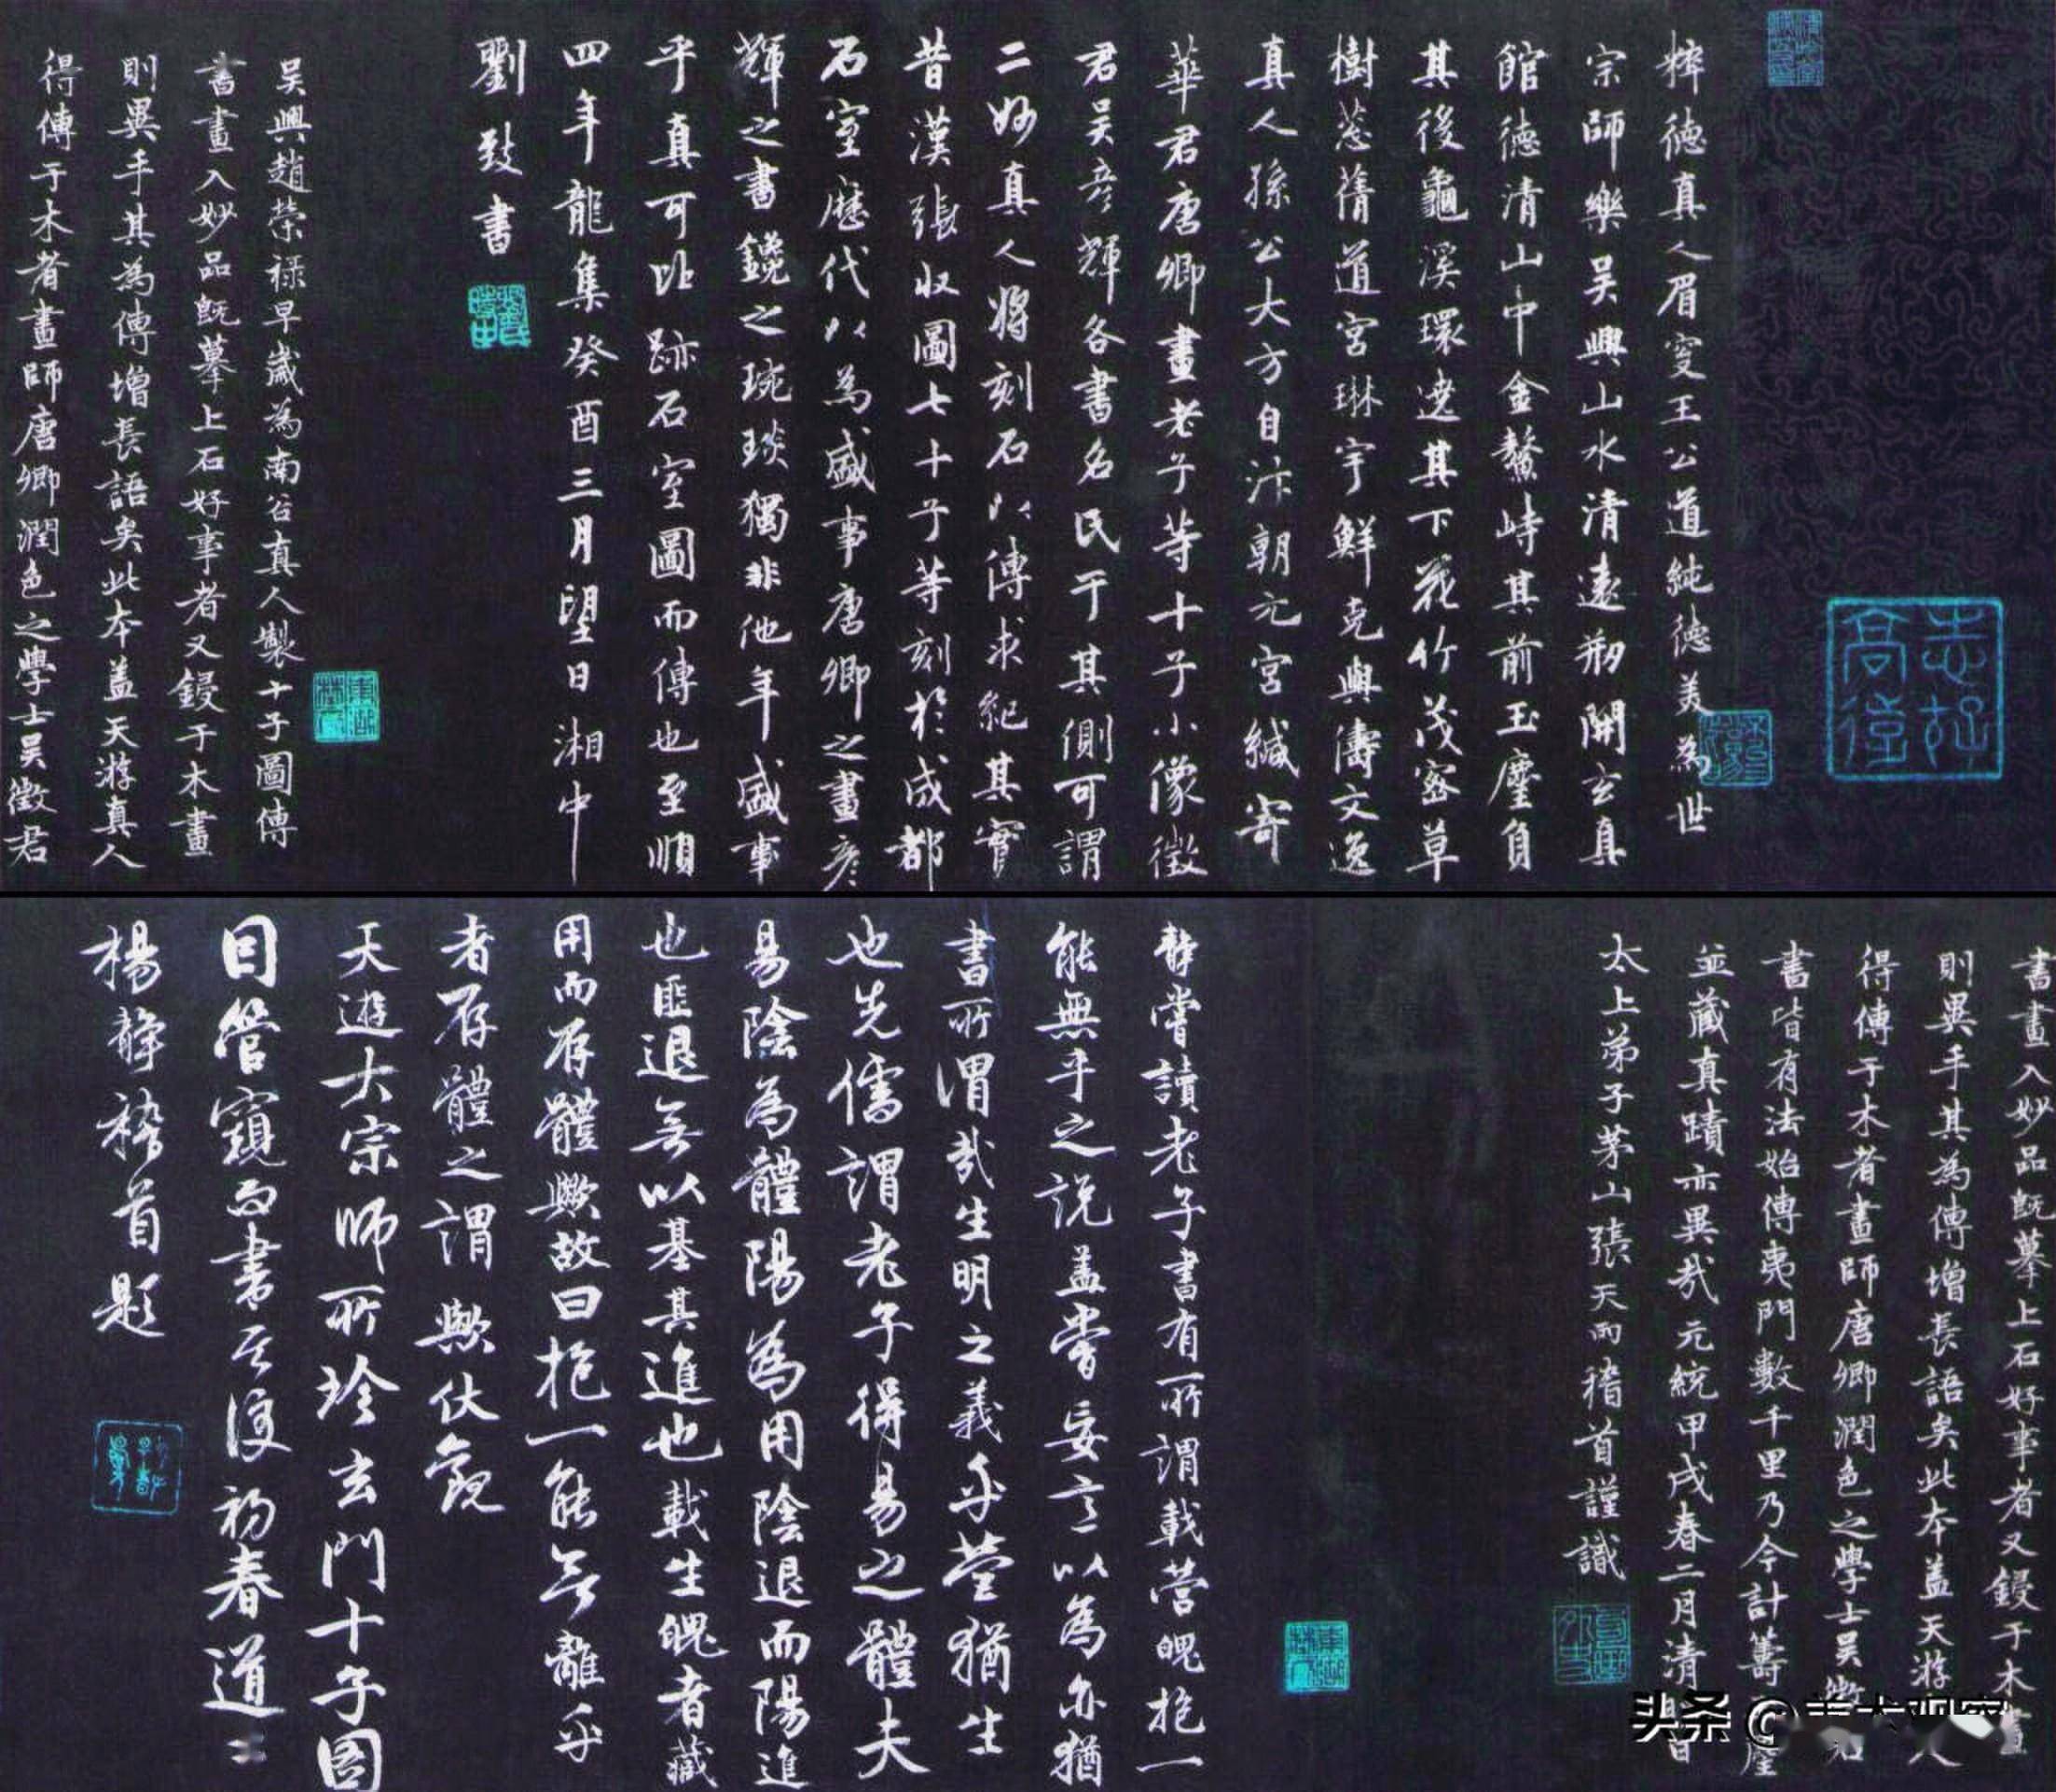 粹德真人眉叟王公道純德美為世
宗師樂吳興山水清遠刱開玄真
館德清山中金鰲峙其前玉麈負
其後龜溪環遶其下花竹茂密草
樹蔥蒨道宮琳宇鮮克與儔文逸
真人孫公大方自汴朝元宮緘寄
華君唐卿畫老子等十子小像徵
君吳彥輝各書名氏于其側可謂
二妙真人將刻石以傳求紀其實
昔漢張收圖七十子等刻於成都
石室歷代以為盛事唐卿之畫彥
輝之書鑱之琬琰獨非他年盛事
乎真可比跡石室圖而傳也至順
四年龍集癸酉三月望日湘中
劉致書
吳興趙榮祿早歲為南谷真人製十子圖傳
書畫入妙品既摹上石好事者又鋟于木畫
則異手其為傳增長語矣此本蓋天游真人
得傳于木者畫師唐卿潤色之學士吳徵君
書畫入妙品既摹上石好事者又鋟于木畫
則異手其為傳增長語矣此本蓋天游真人
得傳于木者畫師唐卿潤色之學士吳徵君
書皆有法始傳夷門數千里乃今計籌山房
並藏真蹟亦異哉元統甲戌春二月清明日
太上弟子茅山張天雨稽首謹識
靜嘗讀老子書有所謂載營魄抱一
能無乎之說蓋嘗妄意以為亦猶
書所謂哉生明之義乎營猶生
也先儒謂老子得易之體夫
易陰為體陽為用陰退而陽進
也匪退無以基其進也載生魄者藏
用而存體歟故曰抱一能無離乎
者存體之謂歟伏觀
天遊大宗師所珍玄門十子圖
目管窺而書于後初春道士
楊靜稽首題
志好
高遠
头条 @美术观察